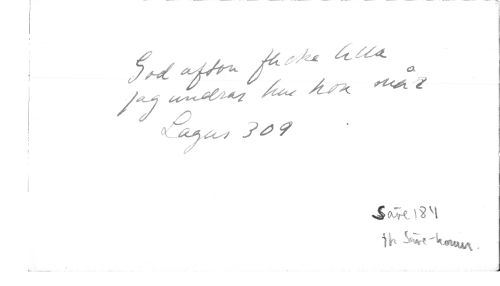 God afton flicka lilla
jag undrar hur hon mår
Lagus 309
Säve 184